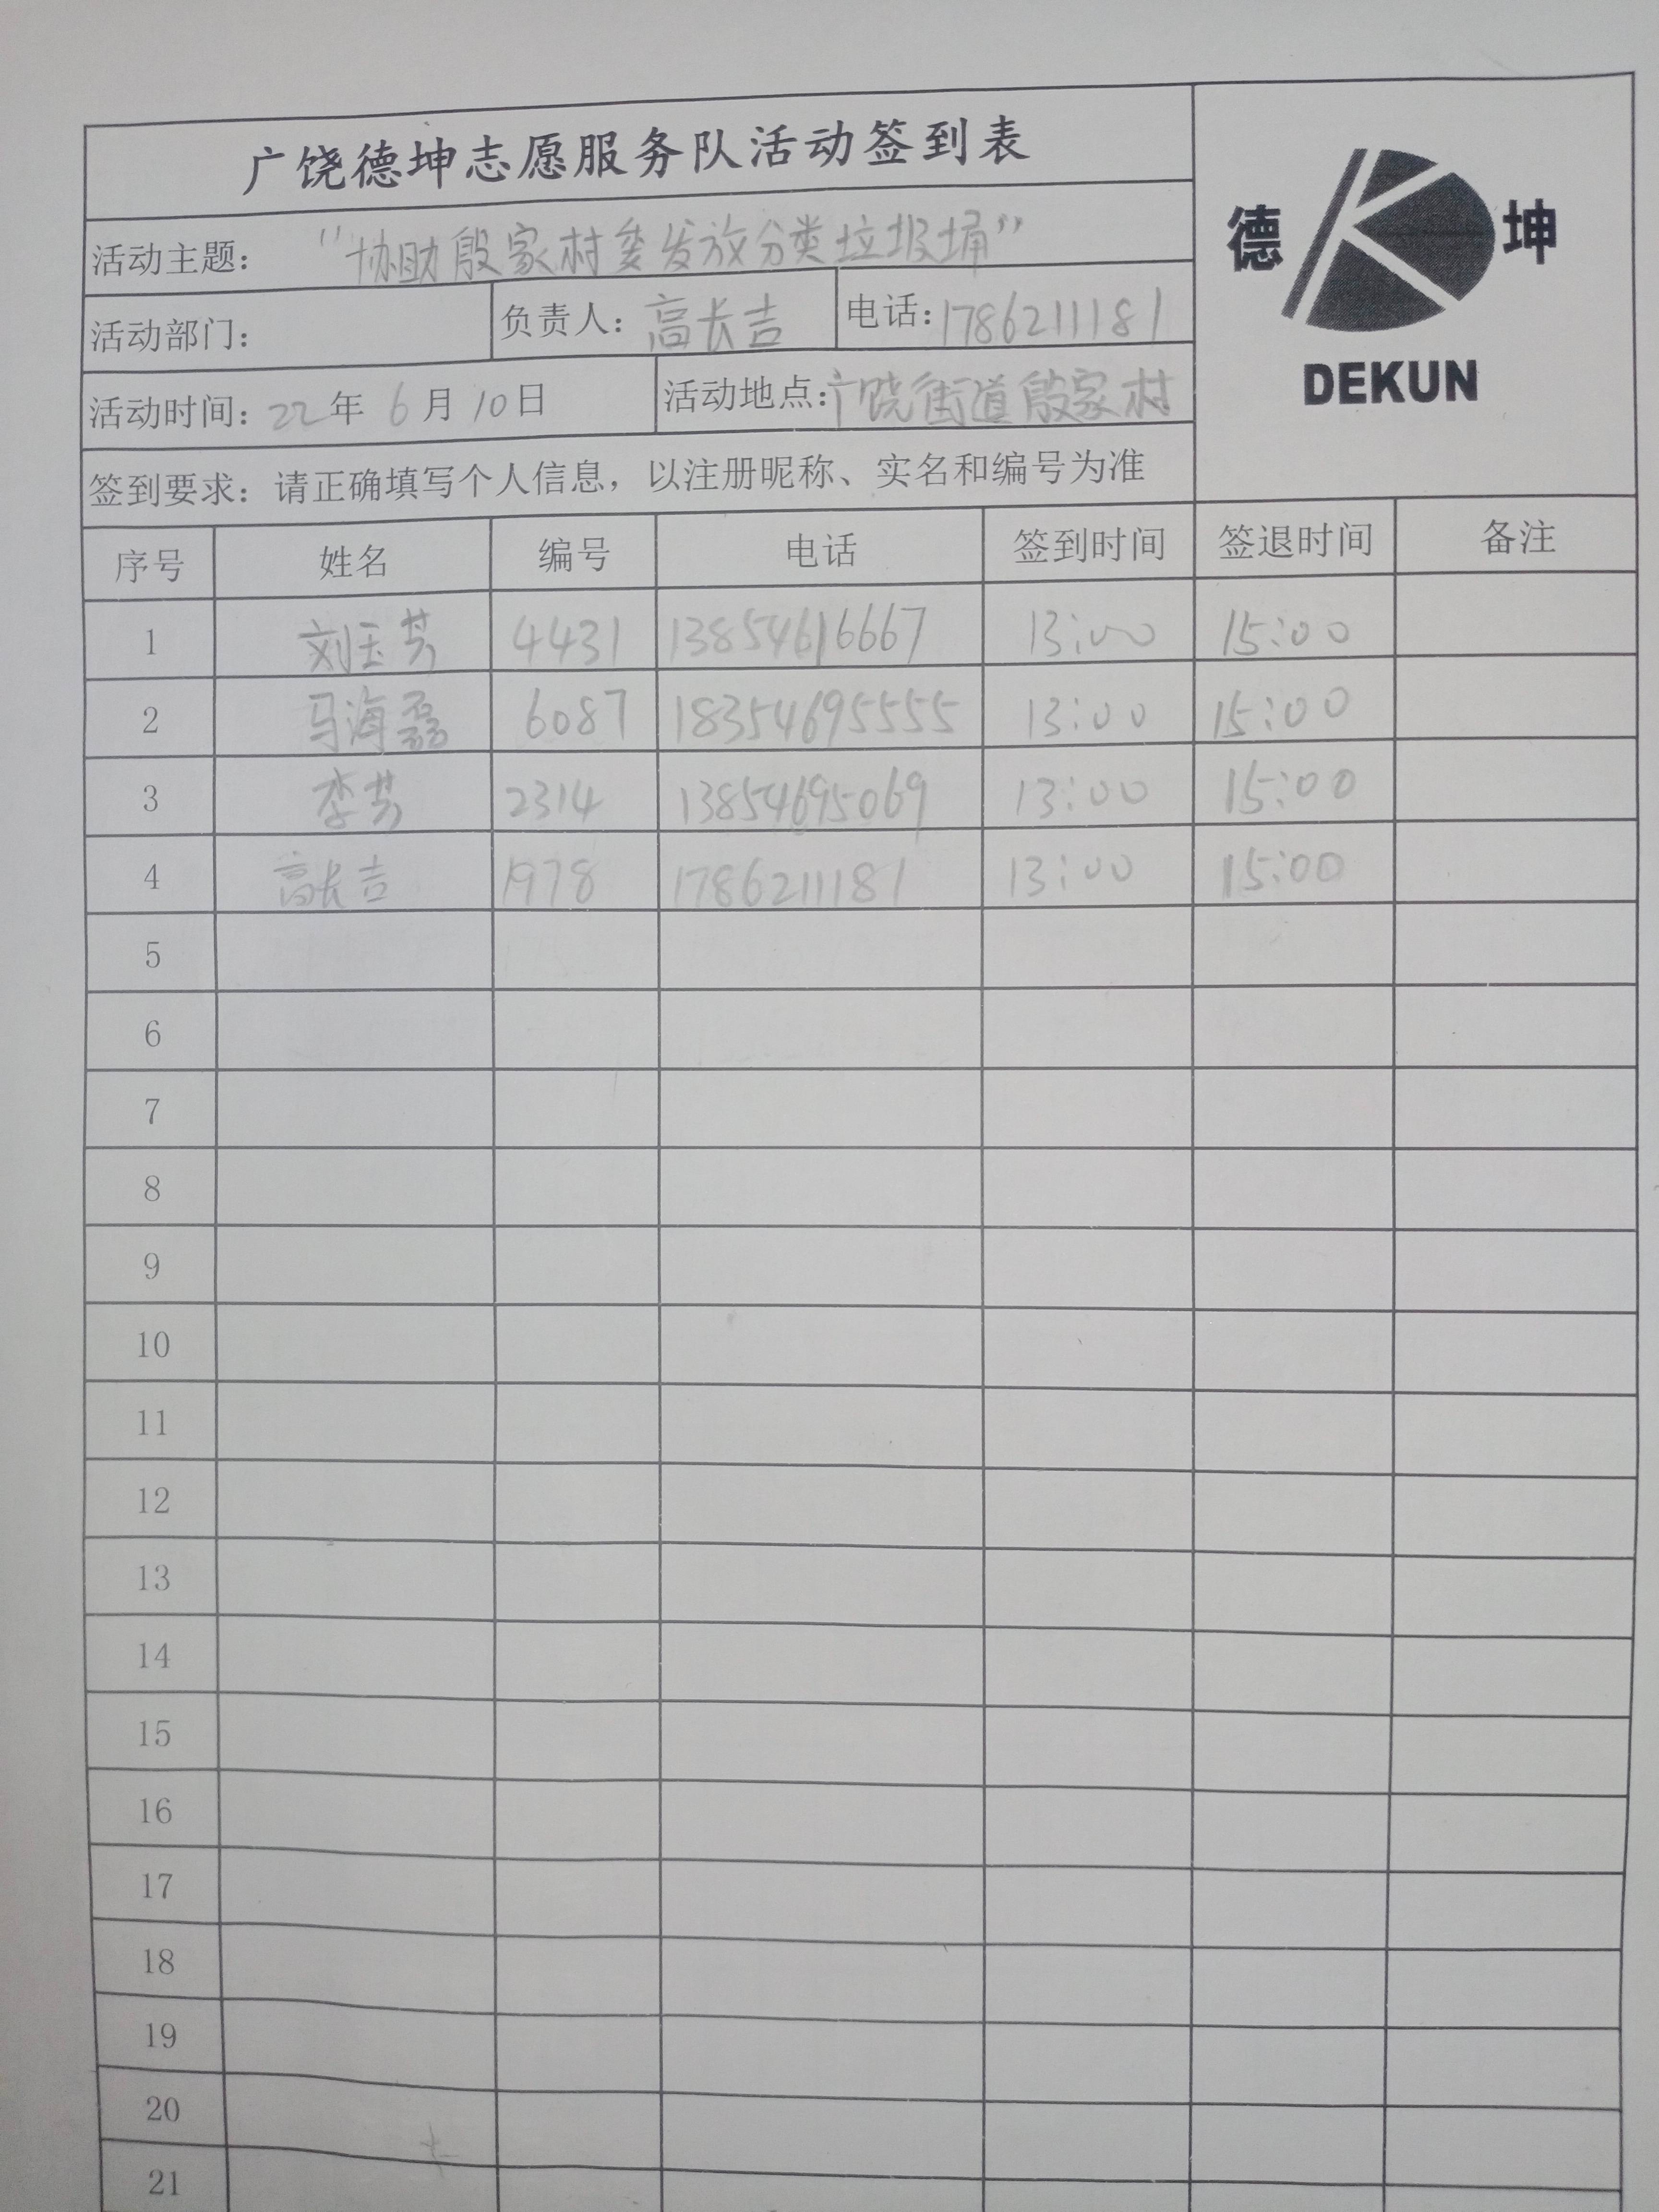 广饶德坤志愿服务队活动签到表
德 坤
DEKUN
活动主题： “协助殷家村委发放分类垃圾桶”
活动部门： 负责人：高长吉 电话：17862111181
活动时间：22年6月10日 活动地点：广饶街道殷家村
签到要求：请正确填写个人信息，以注册昵称、实名和编号为准
序号 姓名 编号 电话 签到时间 签退时间 备注
1 刘玉芳 4431 13854616667 13:00 15:00
2 马海磊 6087 18354695555 13:00 15:00
3 李芳 2314 13854695069 13:00 15:00
4 高长吉 1978 17862111181 13:00 15:00
5
6
7
8
9
10
11
12
13
14
15
16
17
18
19
20
21